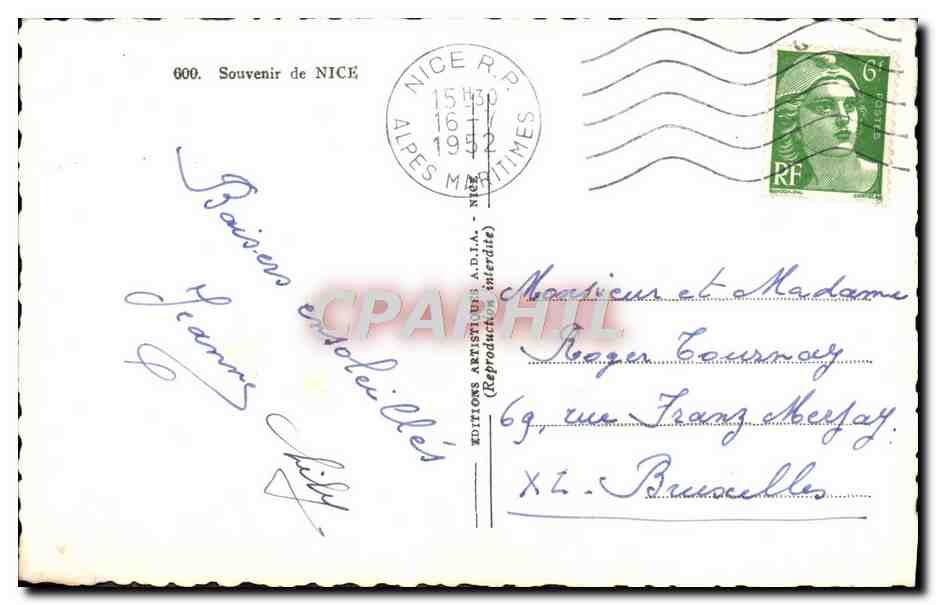 600. Souvenir de NICE
NICE R.P.
15H30
16-V
1952
ALPES MARITIMES
6F
POSTES
RF
Baisers ensoleillés
Jeanne
EDITIONS ARTISTIQUES A.D.I.A. - NICE
(Reproduction interdite)
CPAPHIL
Monsieur et Madame
Roger Tournay
69, rue Franz Merjay.
XL - Bruxelles